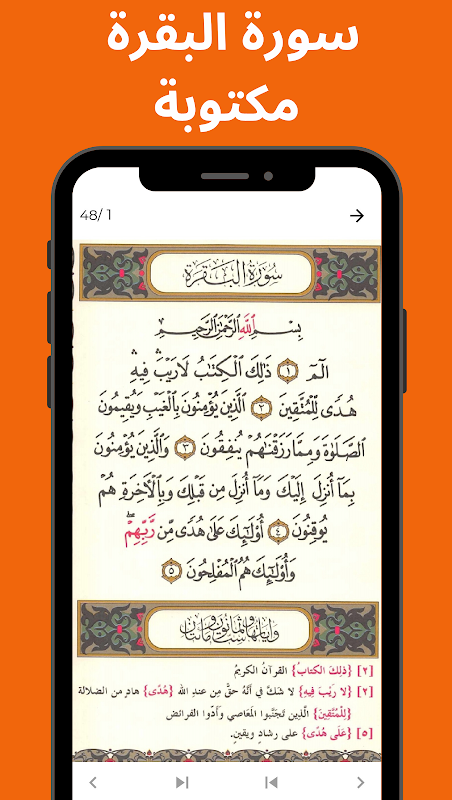 سورة البقرة
مكتوبة
48/ 1
سُورَةُ الْبَقَرَة
بِسْمِ اللَّهِ الرَّحْمَٰنِ الرَّحِيمِ
الٓمٓ ١ ذَٰلِكَ الْكِتَٰبُ لَا رَيْبَ ۛ فِيهِ ۛ
هُدًى لِّلْمُتَّقِينَ ٢ الَّذِينَ يُؤْمِنُونَ بِالْغَيْبِ وَيُقِيمُونَ
الصَّلَوٰةَ وَمِمَّا رَزَقْنَٰهُمْ يُنفِقُونَ ٣ وَالَّذِينَ يُؤْمِنُونَ
بِمَآ أُنزِلَ إِلَيْكَ وَمَآ أُنزِلَ مِن قَبْلِكَ وَبِالْأَخِرَةِ هُمْ
يُوقِنُونَ ٤ أُو۟لَٰٓئِكَ عَلَىٰ هُدًى مِّن رَّبِّهِمْ ۖ
وَأُو۟لَٰٓئِكَ هُمُ الْمُفْلِحُونَ ٥
وَآيَاتُهَا سِتٌّ وَثَمَانُونَ وَمِائَتَانِ
[٢] {ذَلِكَ الكتابُ} القرآنُ الكريمُ
[٢] {لا رَيْبَ فِيهِ} لا شكَّ في أنَّهُ حقٌّ مِن عندِ الله {هُدًى} هادٍ من الضلالة
{لِلْمُتَّقِينَ} الَّذين تَجَنَّبوا المَعاصي وَأَدَّوا الفرائضَ
[٥] {عَلَى هُدًى} على رشادٍ ويقينٍ.